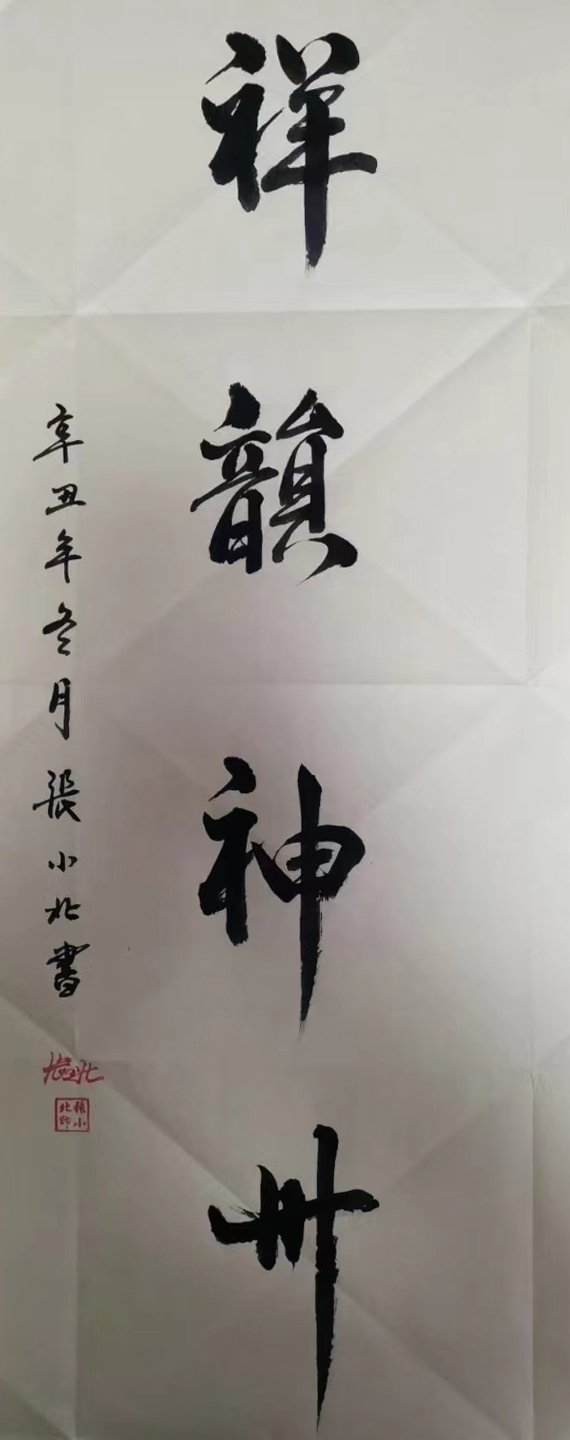 祥韻神州
辛丑年冬月張小北書
張小北印